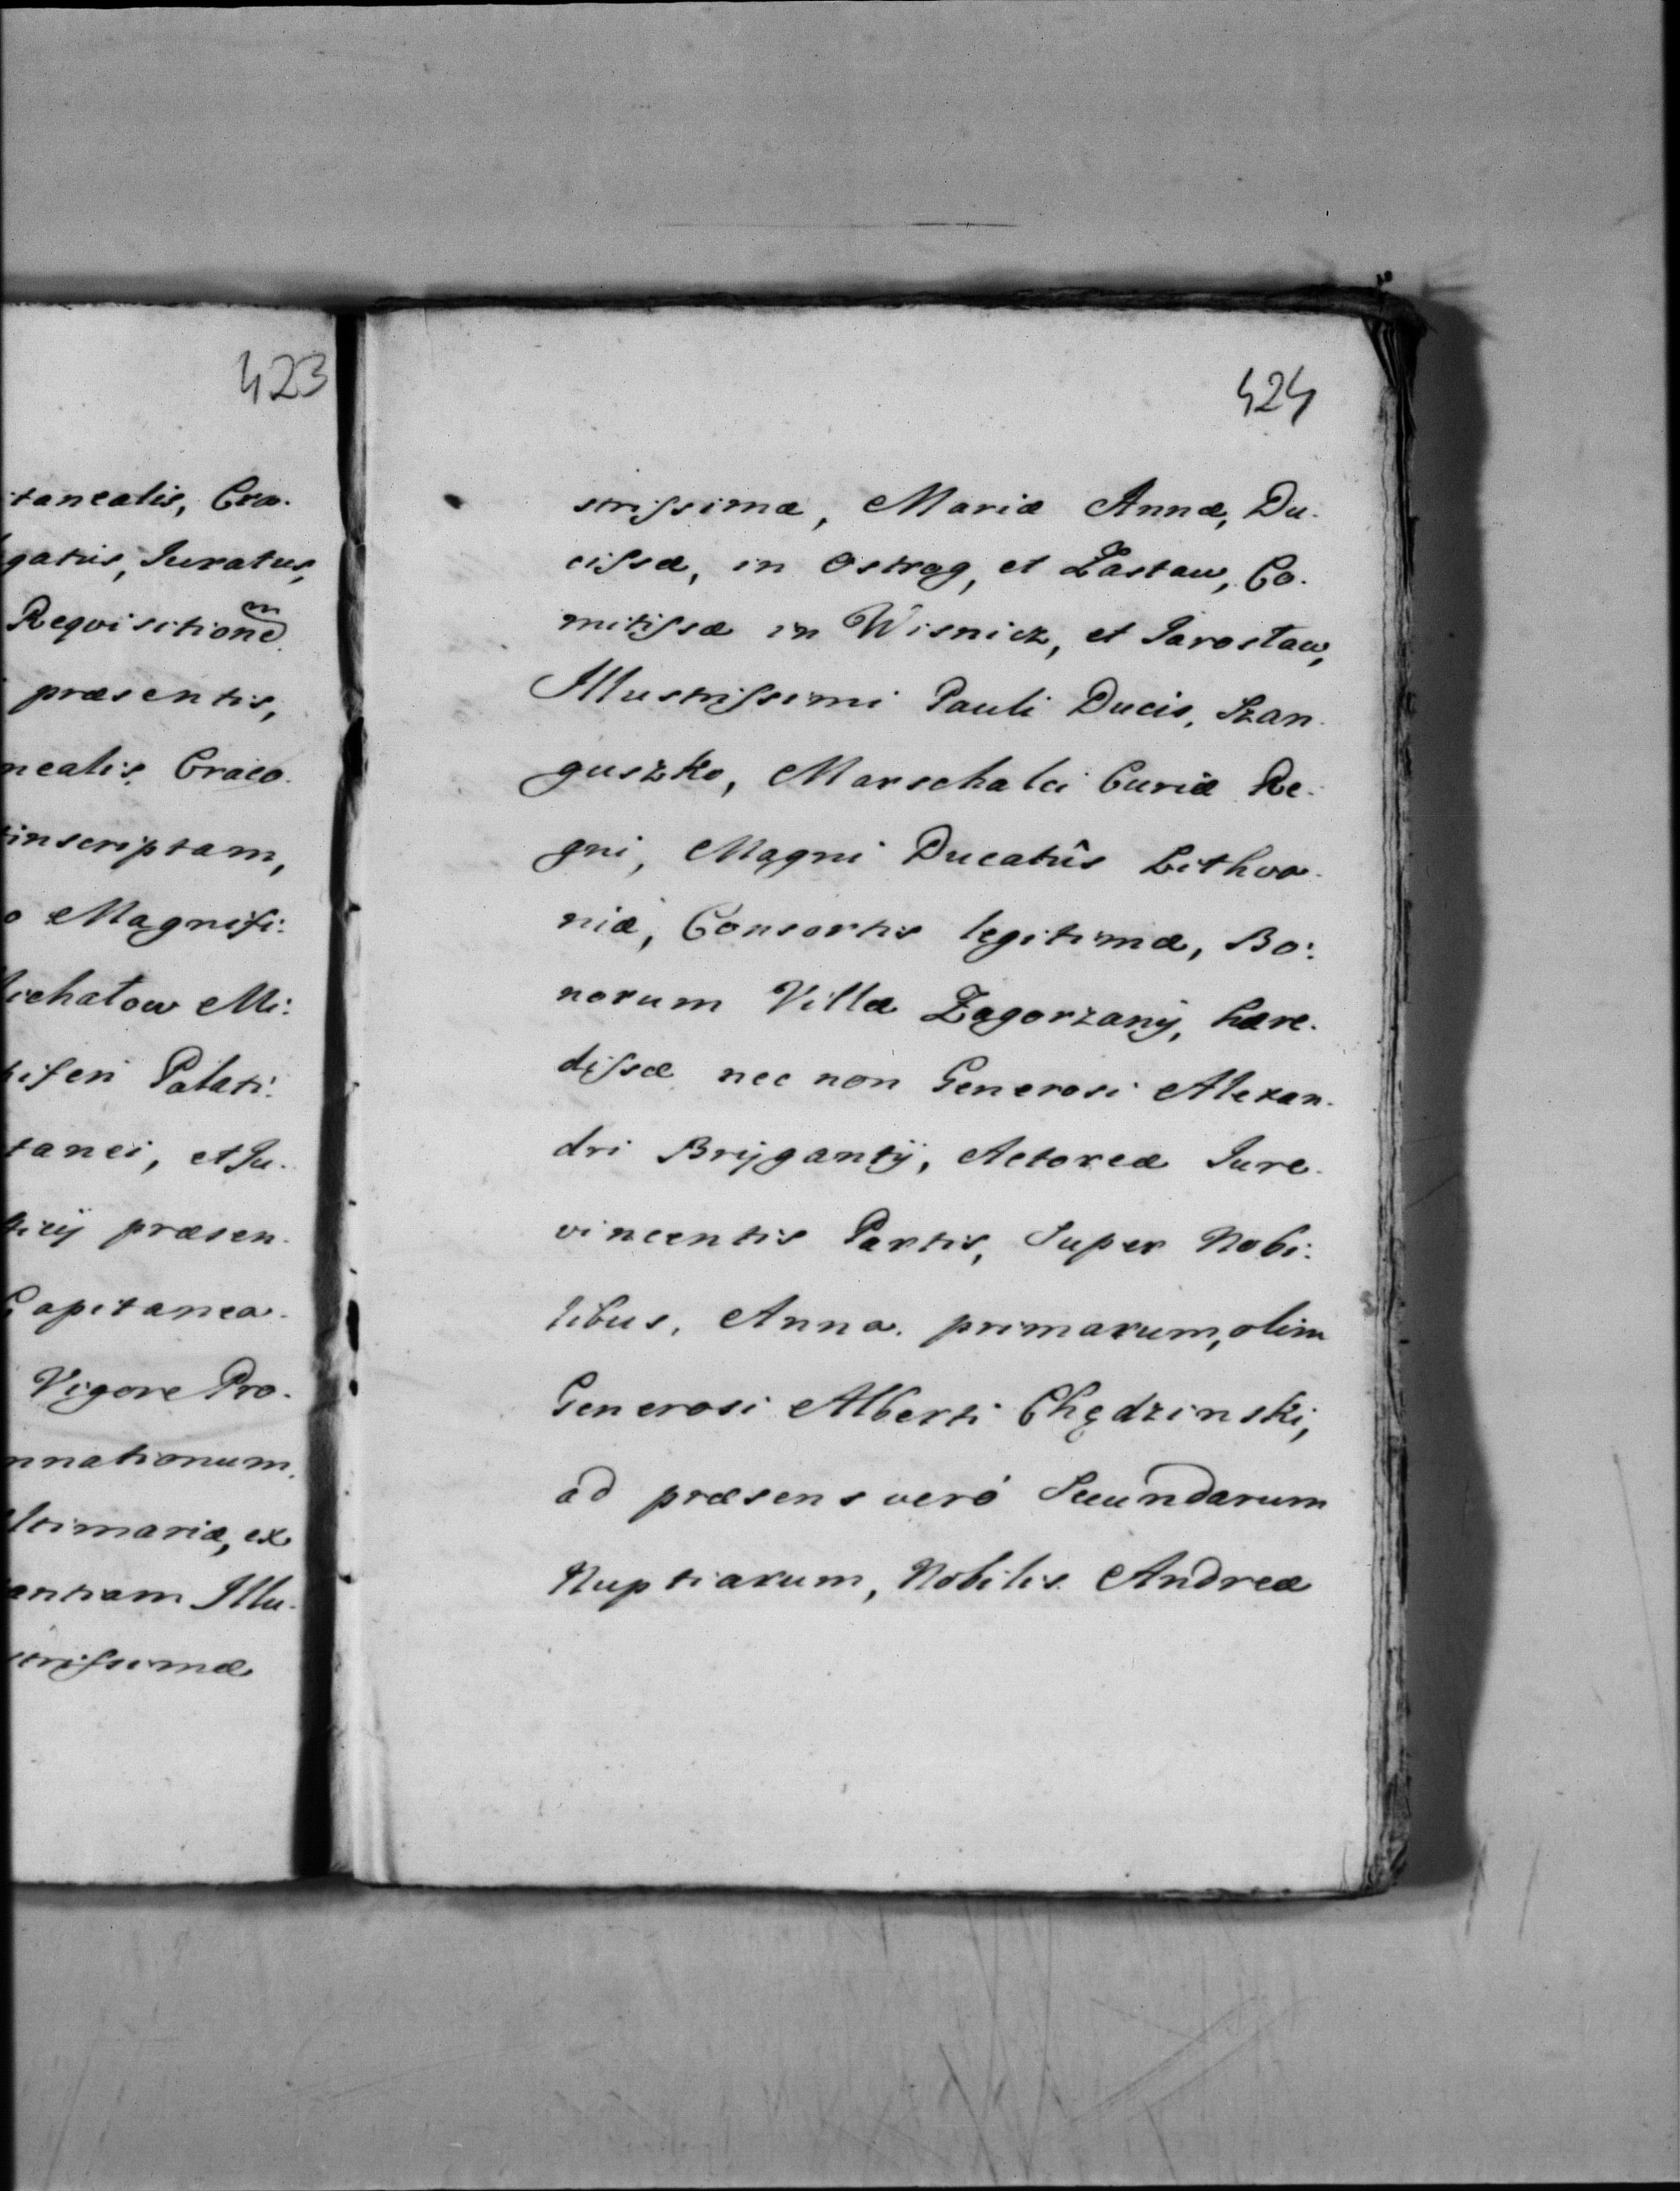 423
tanealis, Cra.
gatus, Iuratus,
Requisitionem.
præsentis,
nealis, Craco.
inscriptam,
o Magnifi:
ichałow Mi:
iferi Palati:
tanei, et Iu.
præsen.
Capitanea.
Vigore Pro.
nnationum.
ltimariæ, ex
antiam Illu.
strissimæ
424
strissimæ, Mariæ Annæ, Du.
cissæ, in Ostrog, et Zasław, Co.
mitissæ in Wisnicz, et Iarosław,
Illustrissimi Pauli Ducis, Szan.
guszko, Marschalci Curiæ Re.
gni, Magni Ducatûs Lithva.
niæ, Consortis legitimæ, Bo:
norum Villæ Zagorzany, hære.
dissæ nec non Generosi Alexan.
dri Bryganty, Actoreæ Iure.
vincentis Partis, Super Nobi:
libus, Anna. primarum, olim
Generosi Alberti Chędzinski,
ad præsens verò Secundarum
Nuptiarum, Nobilis Andreæ